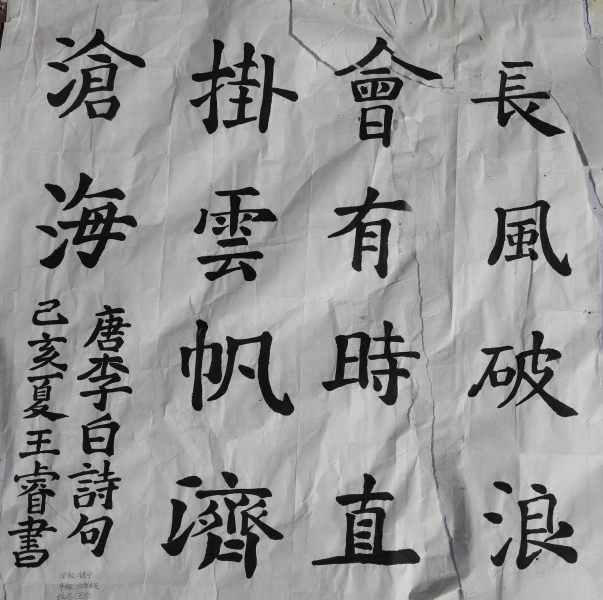 長風破浪
會有時直
掛雲帆濟
滄海
唐李白詩句
己亥夏王睿書